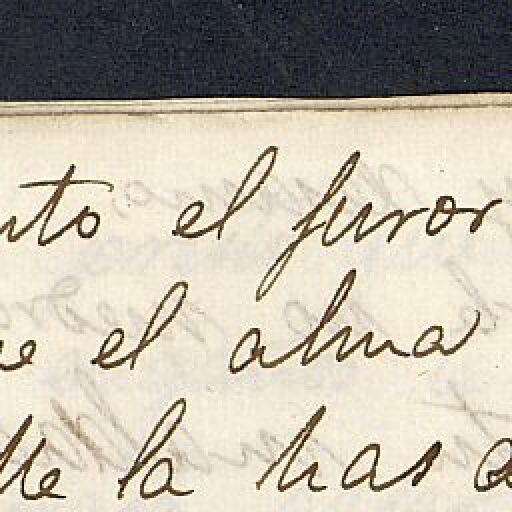 nto el furor
e el alma
lle la has a